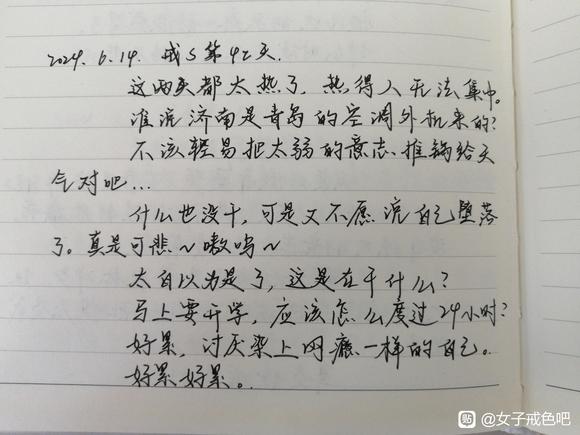 2024.6.14. 戒S第42天.
这两天都太热了, 热得人无法集中。
谁说济南是青岛的空调外机来的?
不该轻易把太弱的意志推锅给天
气对吧...
什么也没干, 可是又不愿说自己堕落
了。真是可悲~嗷呜~
太自以为是了, 这是在干什么?
马上要开学, 应该怎么度过24小时?
好累, 讨厌染上网瘾一样的自己。
好累好累。
贴 @女子戒色吧